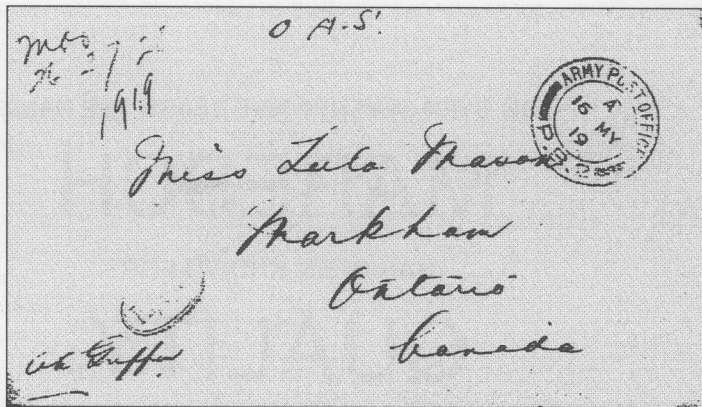 O A.S.
1919
ARMY POST OFFICE
A
16 MY
19
P.B.2
Miss Lulo Mason
Markham
Ontario
Canada